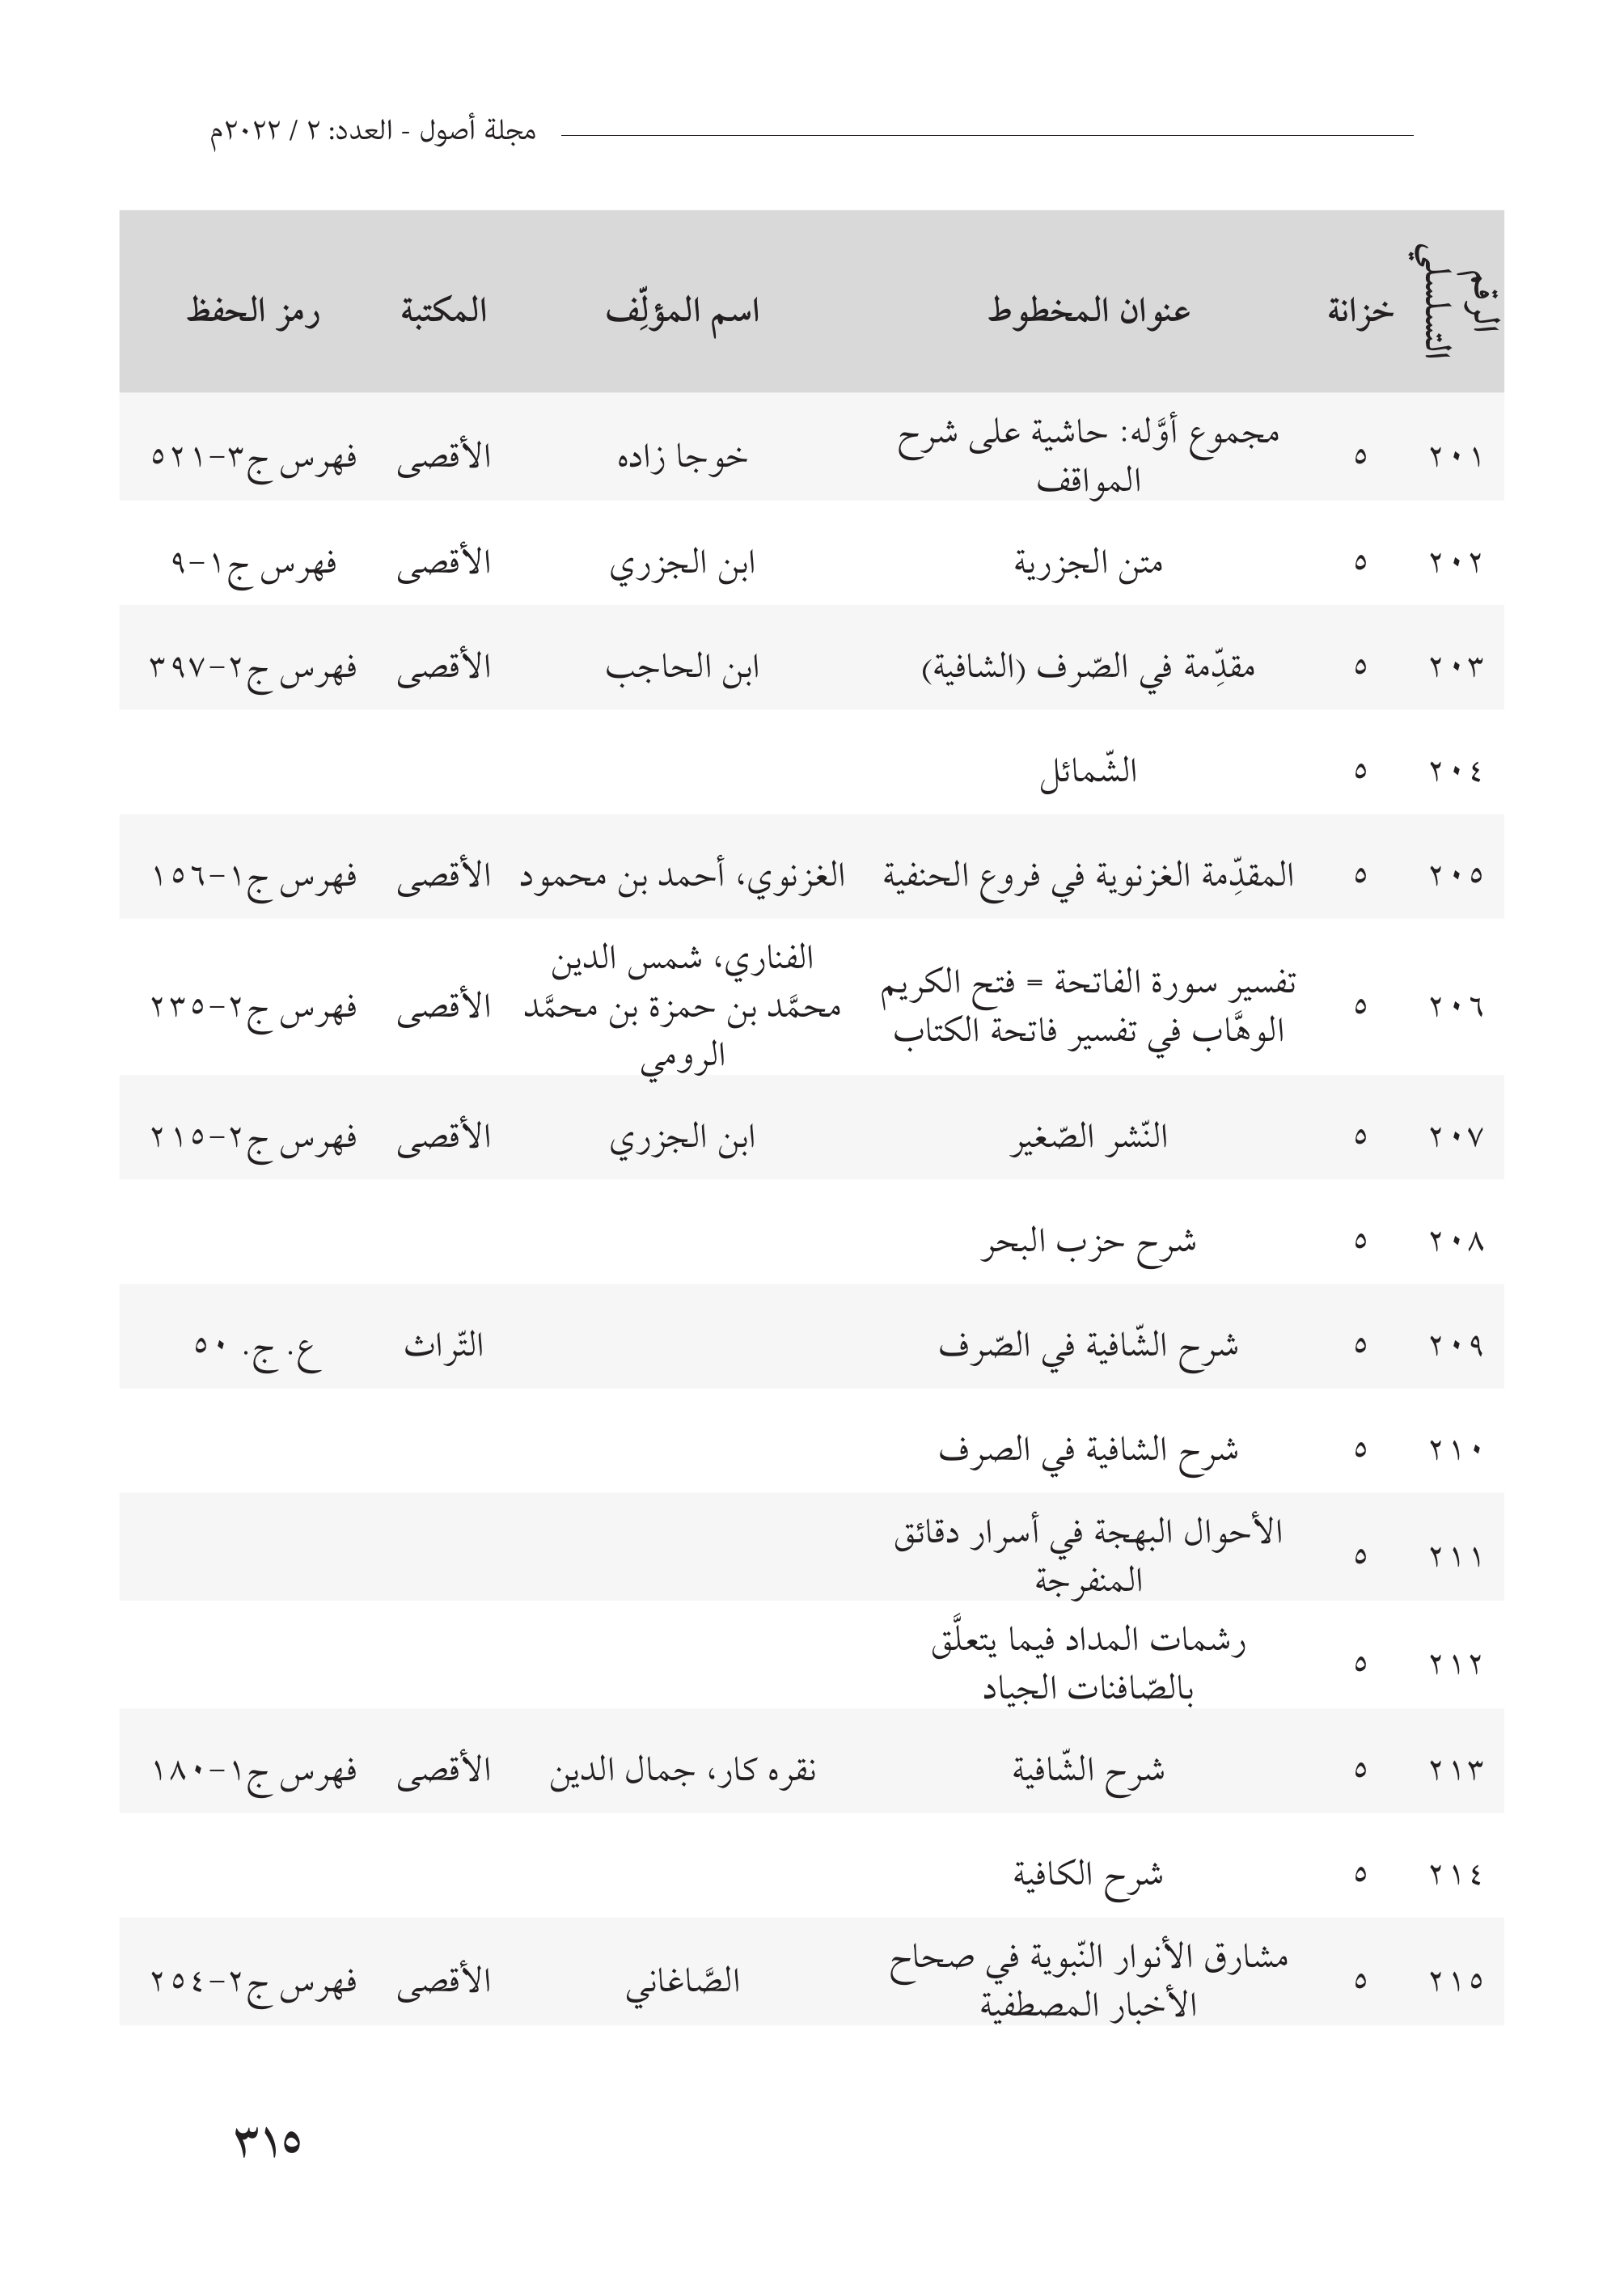 مجلة أصول - العدد: ٢ / ٢٠٢٢م
الرقم التسلسلي خزانة عنوان المخطوط اسم المؤلِّف المكتبة رمز الحفظ
٢٠١ ٥ مجموع أوَّله: حاشية على شرح المواقف خوجا زاده الأقصى فهرس ج٣-٥٢١
٢٠٢ ٥ متن الجزرية ابن الجزري الأقصى فهرس ج١-٩
٢٠٣ ٥ مقدِّمة في الصّرف (الشافية) ابن الحاجب الأقصى فهرس ج٢-٣٩٧
٢٠٤ ٥ الشّمائل
٢٠٥ ٥ المقدِّمة الغزنوية في فروع الحنفية الغزنوي، أحمد بن محمود الأقصى فهرس ج١-١٥٦
٢٠٦ ٥ تفسير سورة الفاتحة = فتح الكريم الوهَّاب في تفسير فاتحة الكتاب الفناري، شمس الدين محمَّد بن حمزة بن محمَّد الرومي الأقصى فهرس ج٢-٢٣٥
٢٠٧ ٥ النّشر الصّغير ابن الجزري الأقصى فهرس ج٢-٢١٥
٢٠٨ ٥ شرح حزب البحر
٢٠٩ ٥ شرح الشّافية في الصّرف التّراث ع. ج. ٥٠
٢١٠ ٥ شرح الشافية في الصرف
٢١١ ٥ الأحوال البهجة في أسرار دقائق المنفرجة
٢١٢ ٥ رشمات المداد فيما يتعلَّق بالصّافنات الجياد
٢١٣ ٥ شرح الشّافية نقره كار، جمال الدين الأقصى فهرس ج١-١٨٠
٢١٤ ٥ شرح الكافية
٢١٥ ٥ مشارق الأنوار النّبوية في صحاح الأخبار المصطفية الصَّاغاني الأقصى فهرس ج٢-٢٥٤
٣١٥